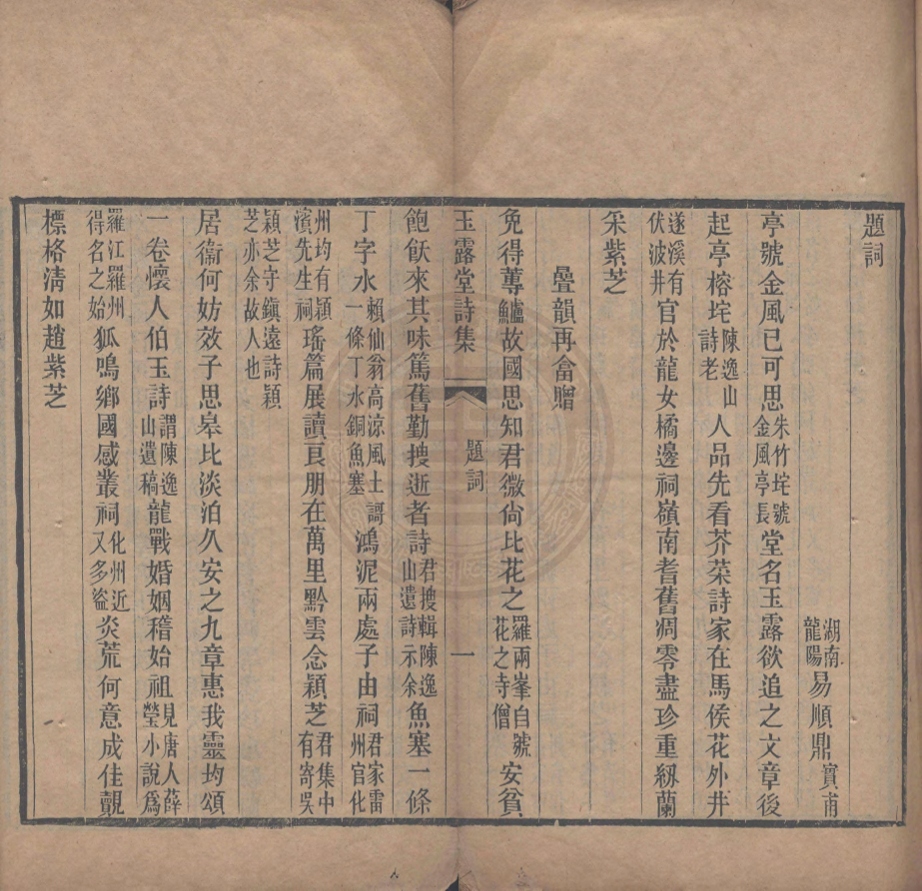 題詞
湖南龍陽易順鼎實甫
亭號金風已可思朱竹垞號金風亭長堂名玉露欲追之文章後
起亭榕垞陳逸山詩老人品先看芥菜詩家在馬侯花外井
遂溪有伏波井官於龍女橘邊祠嶺南耆舊凋零盡珍重紉蘭
采紫芝
疊韻再畣贈
免得蓴鱸故國思知君微尙比花之羅兩峯自號花之寺僧安貧
玉露堂詩集
題詞
一
飽飫來其味篤舊勤搜逝者詩君搜輯陳逸山遺詩示余魚塞一條
丁字水賴仙翁高涼風土謌一條丁水銅魚塞鴻泥兩處子由祠君家雷州官化
州均有潁濱先生祠瑤篇展讀良朋在萬里黔雲念穎芝君集中有寄吳
穎芝守鎭遠詩穎芝亦余故人也
居衞何妨效子思皋比淡泊久安之九章惠我靈均頌
一卷懷人伯玉詩謂陳逸山遺稿龍戰婚姻稽始祖見唐人薛瑩小說爲
羅江羅州得名之始狐鳴鄉國感叢祠化州近又多盜炎荒何意成佳覿
標格淸如趙紫芝